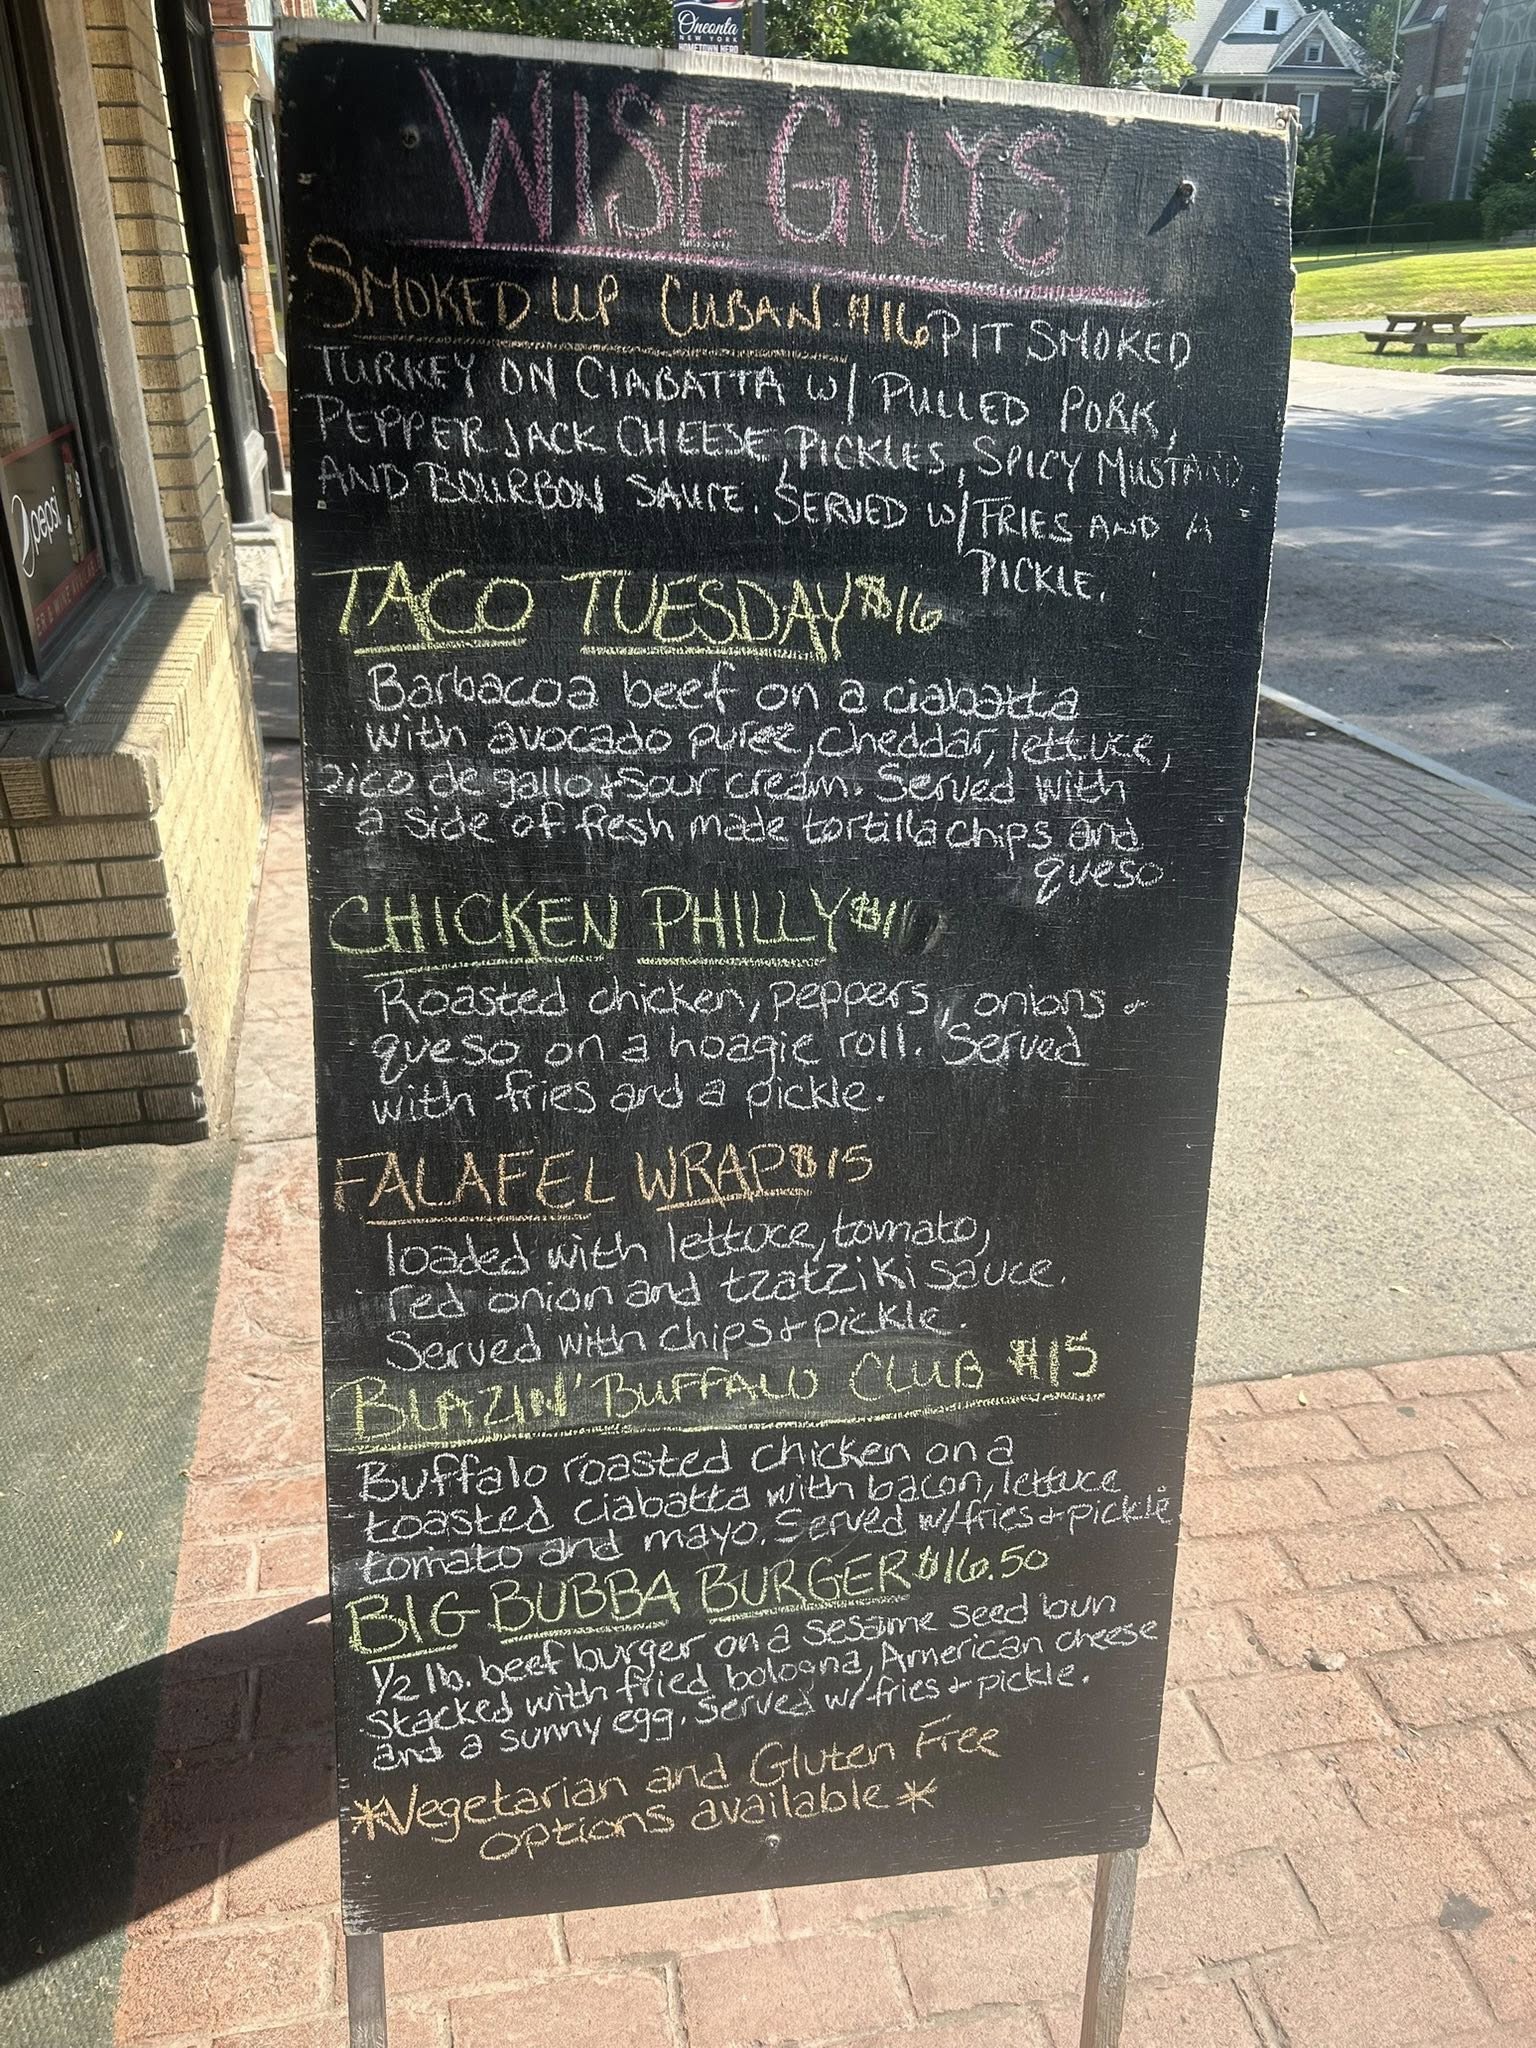 Oneonta
NEW YORK
HOMETOWN HERO
WISE GUYS
SMOKED UP CUBAN $16 PIT SMOKED
TURKEY ON CIABATTA W/ PULLED PORK,
PEPPER JACK CHEESE, PICKLES, SPICY MUSTARD
AND BOURBON SAUCE. SERVED W/ FRIES AND A
PICKLE.
TACO TUESDAY $16
Barbacoa beef on a ciabatta
with avocado puree, cheddar, lettuce,
pico de gallo + sour cream. Served with
a side of fresh made tortilla chips and
queso
CHICKEN PHILLY
Roasted chicken, peppers, onions +
queso on a hoagie roll. Served
with fries and a pickle.
FALAFEL WRAP $15
loaded with lettuce, tomato,
red onion and tzatziki sauce.
Served with chips + pickle.
BLAZIN' BUFFALO CLUB $15
Buffalo roasted chicken on a
toasted ciabatta with bacon, lettuce
tomato and mayo. Served w/ fries + pickle
BIG BUBBA BURGER $16.50
1/2 lb. beef burger on a sesame seed bun
stacked with fried bologna, American cheese
and a sunny egg. Served w/ fries + pickle.
*Vegetarian and Gluten Free
options available*
pepsi